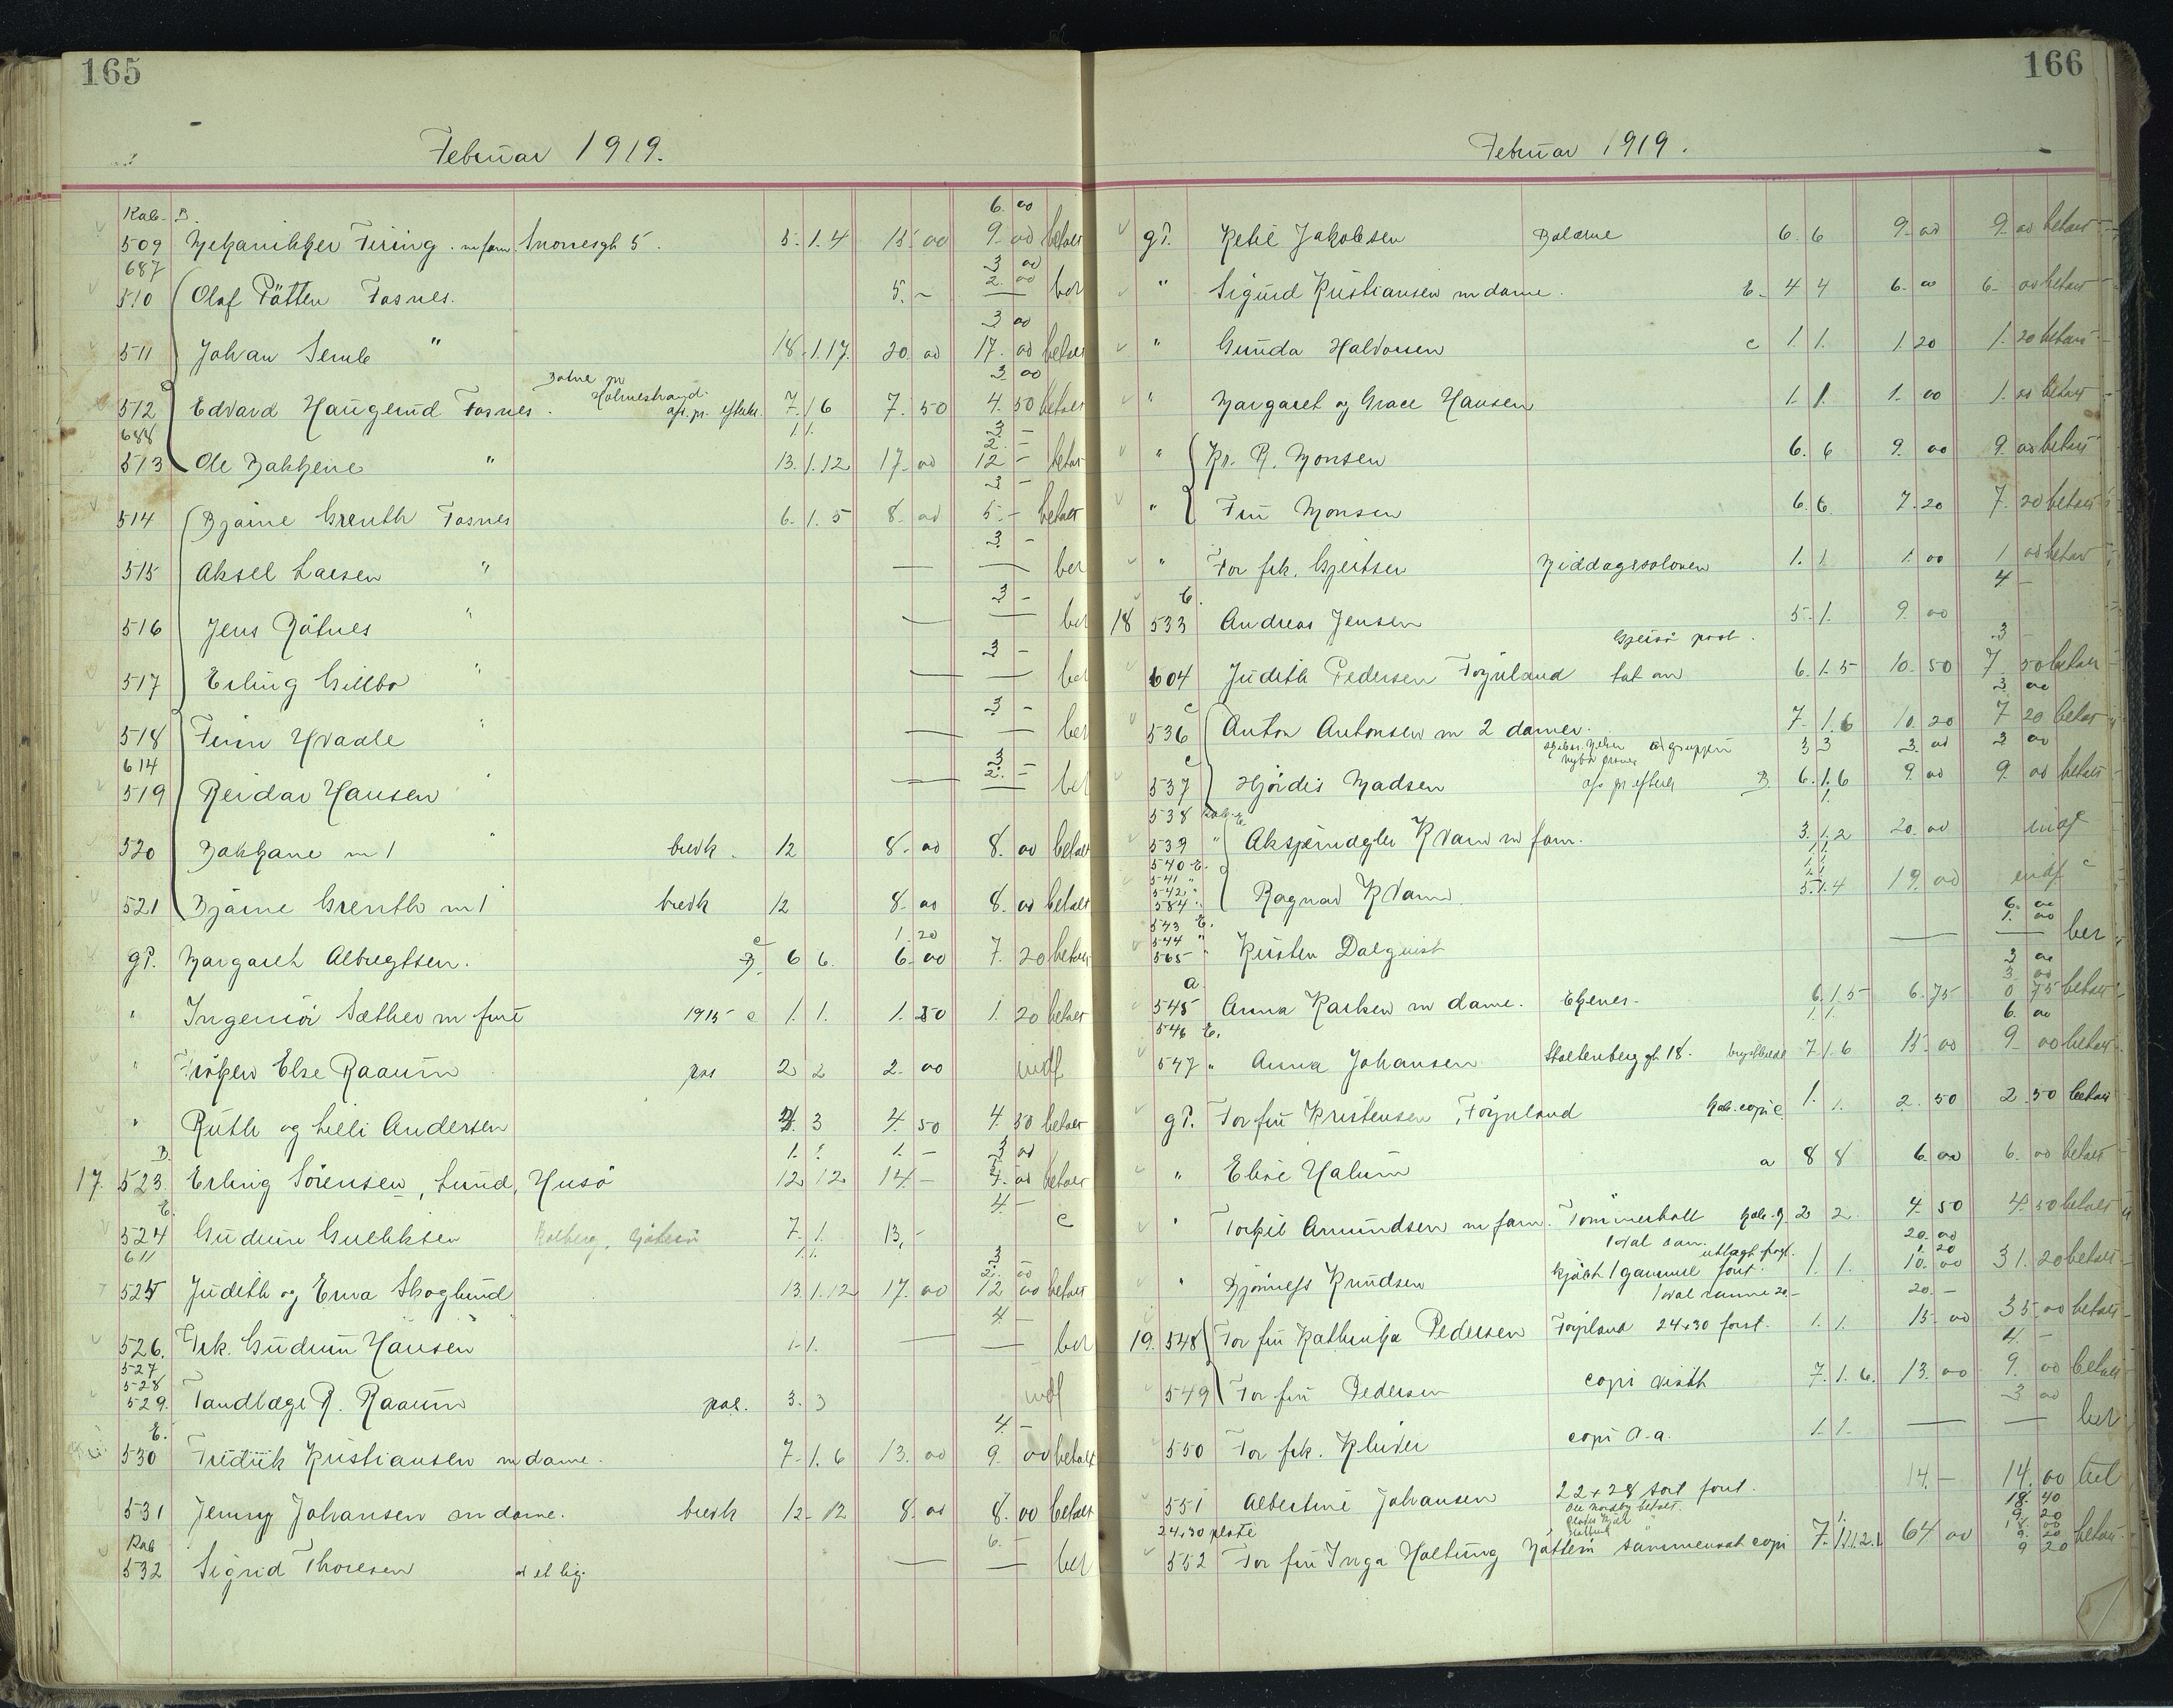 165
Februar 1919.
Kab. B. 6. 00
509 Mekanikker Firing. m fam. Snorresgt 5. 5. 1. 4 15 00 9. 00 betalt
687 3 00
510 Olaf Fosnes. 5. - 2. 00 — ber
3 00
511 Johan Semb " 18. 1. 17. 20. 00 17. 00 betalt
3 00
512 Edvard Haugerud Fosnes. Holmestrand. 7. 1 6 7. 50 4. 50 betalt
688 1. 1. 3. -
2. -
513 Ole Bakkene " 13. 1. 12 17. 00 12 - betalt
3 -
514 Bjarne Grenth Fosnes 6. 1. 5 8. 00 5. - betalt
3. -
515 Aksel Larsen " — — ber
3 -
516 Jens " — — ber
3 -
517 Erling Gillbo " — — ber
3 -
518 Finn Hvaale " — — ber
614 3
2. -
519 Reidar Hansen " — — ber
520 Bakkane m 1 " bredk. 12 8. 00 8. 00 betalt
521 Bjarne Grenth m 1 bredk 12 8. 00 8. 00 betalt
c 1. 20
gl. Margareth Albregtsen. B. 6 6. 6. 00 7. 20 betalt
" Ingeniör Sæther m frue 1915 c 1. 1. 1. 20 betalt
" Fröken Else Raaum pas 2 2 2. 00 indf
" Ruth og Lilli Andersen 3 4. 50 4. 50 betalt
B. 1. 1. 1. - 3 00
17. 523. Erling Sörensen, Lund, Husö 12 12 14. - betalt
E. 4. -
524 Gudrun Gulliksen 7. 1. 13. - c
611 1. 1. 3
2. 00
525 Judith og Erna Skoglund 13. 1. 12 17. 00 12 00 betalt
4 -
526. Frk. Gudrun Hansen 1. 1. — — ber
527
528
529. Tandlæge R. Raaum pas. 3. 3 indf
E. 4. -
530 Fredrik Kristiansen m dame. 7. 1. 6 13. 00 9. 00 betalt
531 Jenny Johansen m dame. bredk 12. 12 8. 00 8. 00 betalt
Kab 6. -
532 Sigrid Thoresen — — ber
166
Februar 1919.
gl. Ketil Jakobsen Bolærne 6. 6 9. 00 9. 00 betalt
" Sigurd Kristiansen m dame. E. 4 4 6. 00 6. 00 betalt
" Gunda Halvorsen c 1. 1. 1. 20 1. 20 betalt
" Margareth og Grace Hansen 1. 1. 1. 00 1. 00 betalt
" Kr. R. Monsen 6. 6 9. 00 9. 00 betalt
" Fru Monsen 6. 6. 7. 20 7. 20 betalt
" For frk. Gjertsen Middagssolonen 1. 1. 1. 00 1 00 betalt
E. 4 -
18 533 Andreas Jensen 5. 1. 9. 00
post. 3 -
604 Judith Pedersen Föynland 6. 1. 5 10. 50 7. 50 betalt
c 3 00
536 Anton Antonsen m 2 damer. 7. 1. 6 10. 20 7 20 betalt
3 3 3. 00 3 00
537 Hjördis Madsen B. 6. 1. 6 9. 00 9. 00 betalt
538 Kab. E.
539 " Kvam m fam. 3. 1. 2 20. 00 indf
540 E.
541 "
542 "
584 " Ragnar Kvam. 5. 1. 4 19. 00 indf c
543 E. 6. 00
544 " 1. 00
565 " Kristen Dalquist — — ber
a. 3 00
3. 00
545 Anna Karlsen m dame. Ekenes. 6. 1. 5 6. 75 0 75 betalt
546 E. 1. 1. 6. 00
547 " Anna Johansen Stoltenberg gt. 18. brystbilde 7. 1. 6 15. 00 9. 00 betalt
gl. For fru Kristensen, Föynland kab. copi c 1. 1. 2. 50 2. 50 betalt
" Elise Halum a 8 8 6. 00 6. 00 betalt
" Torkil Amundsen m fam. Tömmerholt kab. 2 2 4. 50 4. 50 betalt
20. 00
1. 20
" Knudsen 1 gammel forst. 1. 1. 10. 00 31. 20 betalt
1 oval ramme 20.- 20. -
19. 548 For fru Kathinka Pedersen Föynland 24+30 forst. 1. 1. 15. 00 35. 00 betalt
4. -
549 For fru Pedersen copi visitk 7. 1. 6. 13. 00 9. 00 betalt
3 00
550 For frk. Klüver copi a.a. 1. 1. — — ber
551 Albertine Johansen 22+28 sort forst. 14. - 14. 00
24+30 plate 18. 40
9. 20
552 For fru Inga Holtung sammensat copi 7. 64 00 9. 20 betalt
9 20